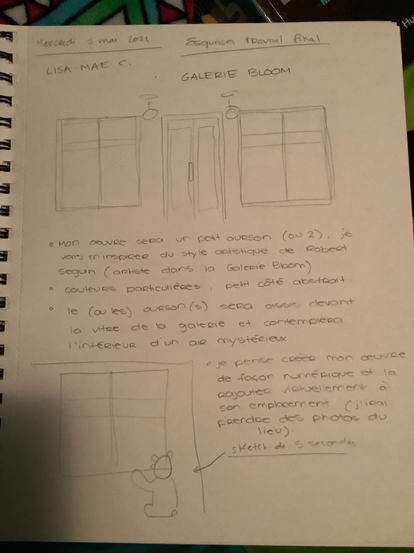 Mercredi 5 mai 2021
Esquisses travail final
LISA-MAE C.
GALERIE BLOOM
• Mon œuvre sera un petit ourson (ou 2), je
vais m'inspirer du style artistique de Robert
Seguin (artiste dans la Galerie Bloom)
• couleurs particulières, petit côté abstrait
• le (ou les) ourson(s) sera assis devant
la vitre de la galerie et contemplera
l'intérieur d'un air mystérieux
• je pense créer mon œuvre
de façon numérique et la
rajouter virtuellement à
son emplacement (j'irai
prendre des photos du
lieu).
sketch de 5 secondes